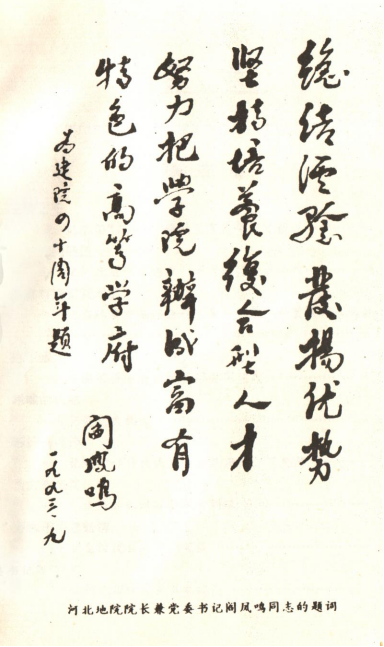 總结经验發揚优势
坚持培養復合型人才
努力把學院辦成富有
特色的高等学府
为建院四十周年题
阎凤鸣
一九九三、九
河北地院院长兼党委书记阎凤鸣同志的题词